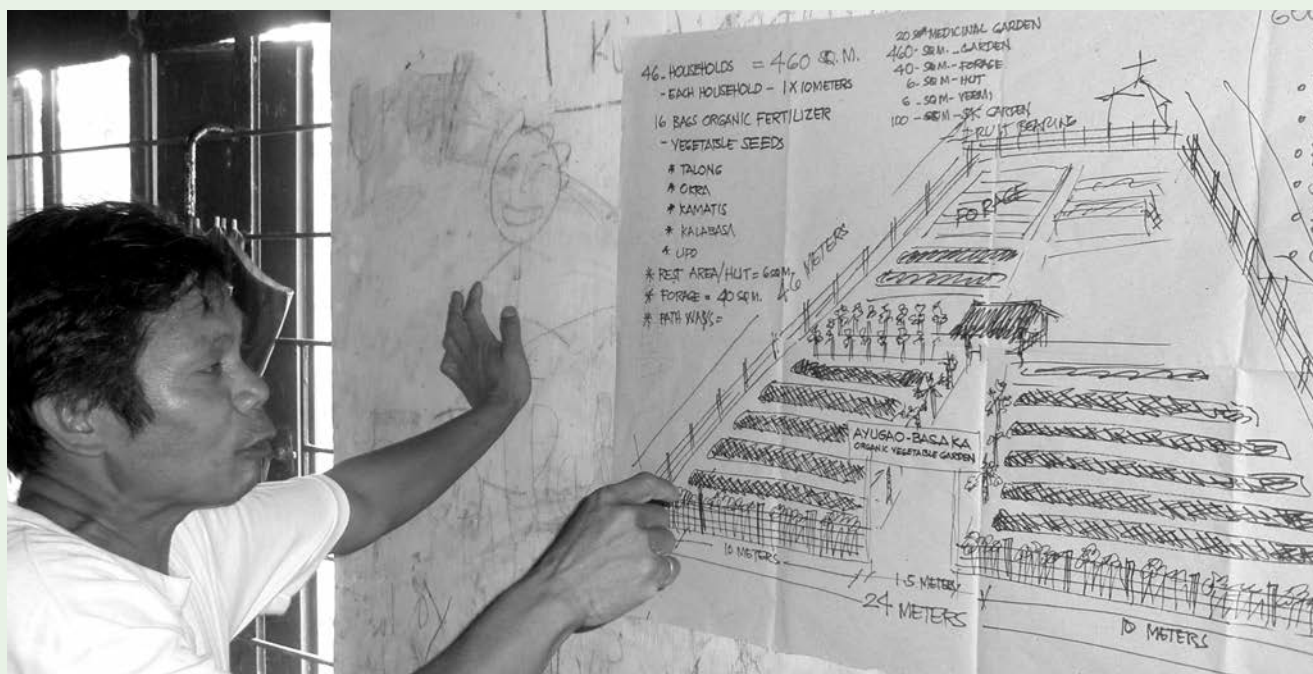 46 - HOUSEHOLDS = 460 SQ. M.
- EACH HOUSEHOLD - 1 X 10 METERS
16 BAGS ORGANIC FERTILIZER
- VEGETABLE SEEDS
* TALONG
* OKRA
* KAMATIS
* KALABASA
* UPO
* REST AREA/HUT = 6 SQM.
* FORAGE = 40 SQM.
* PATH WAYS =
MEDICINAL GARDEN
460 - SQM. - GARDEN
40 - SQM - FORAGE
6 - SQM - HUT
6 - SQM - VERMI
100 - SQM - GARDEN
FRUIT BEARING
FORAGE
46 METERS
AYUGAO-BASAKA
ORGANIC VEGETABLE GARDEN
10 METERS
1.5 METERS
24 METERS
10 METERS